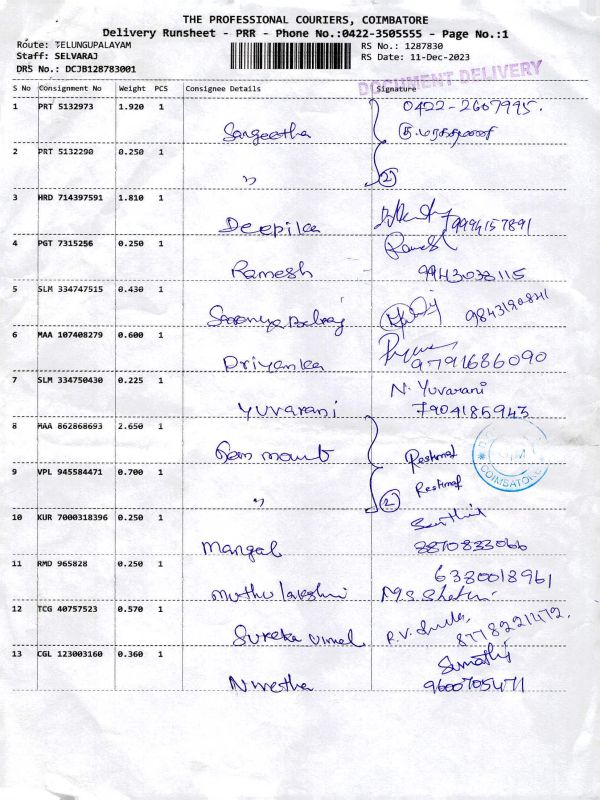 THE PROFESSIONAL COURIERS, COIMBATORE
Delivery Runsheet - PRR - Phone No.:0422-3505555 - Page No.:1
Route: TELUNGUPALAYAM
Staff: SELVARAJ
DRS No.: DCJB128783001
RS No.: 1287830
RS Date: 11-Dec-2023
DOCUMENT DELIVERY
S No Consignment No Weight PCS Consignee Details Signature
1 PRT 5132973 1.920 1 Sangeetha 0422-2607995.
2 PRT 5132290 0.250 1 " 2
3 HRD 714397591 1.810 1 Deepika 7994157891
4 PGT 7315256 0.250 1 Ramesh Ramesh
9943033115
5 SLM 334747515 0.430 1 9843190841
6 MAA 107408279 0.600 1 Priyanka
9791686090
7 SLM 334750430 0.225 1 Yuvarani N. Yuvarani
7904185943
8 MAA 862868693 2.650 1
9 VPL 945584471 0.700 1 " 2
COIMBATORE
10 KUR 7000318396 0.250 1 Mangal
8870833066
11 RMD 965828 0.250 1 Muthu lakshmi 6380018961
12 TCG 40757523 0.570 1 Sureka Vimal 8778221472.
13 CGL 123003160 0.360 1 Nivetha Sumathi
9600705471